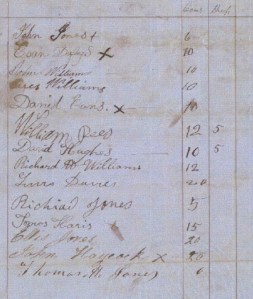 John Jones +
Evan Davis x 10
John William 10
Rees Williams 10
Daniel Evans x 10
William Rees 12 5
David Hughes 10 5
Richard W Williams 12
Davies 20
Richiad Jones 5
Haris 15
Jones 20
John Haycock x 20
Thomas M Jones 6